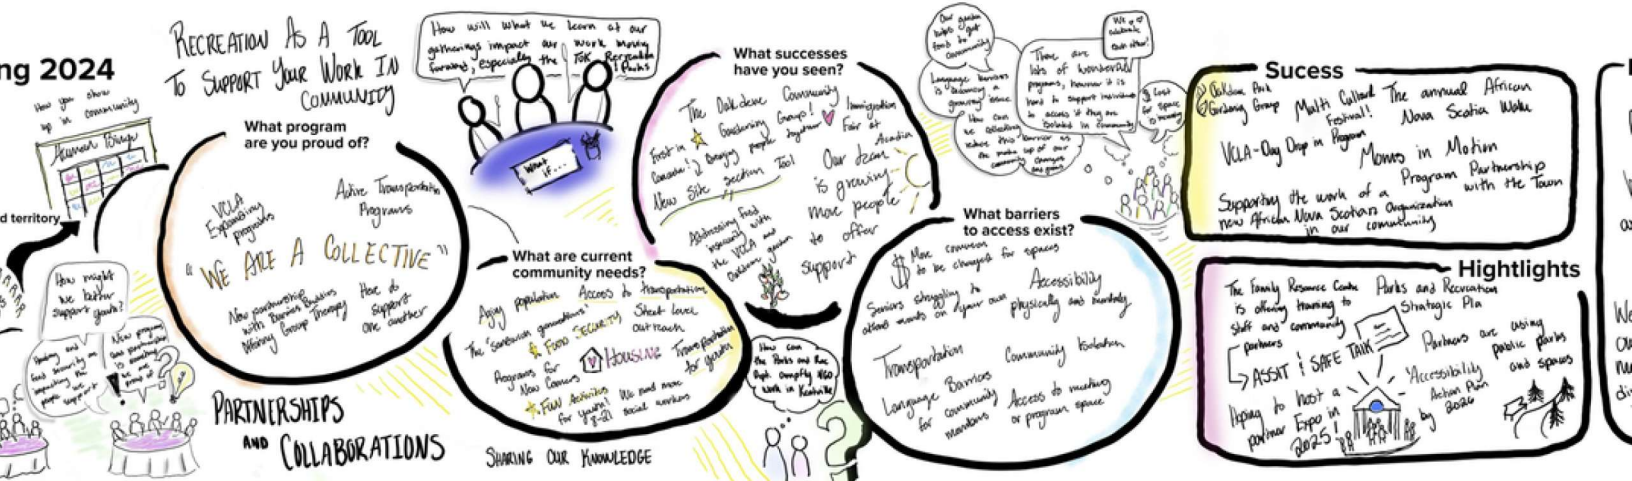 ng 2024
How you show
up in community
Human Bingo
d territory
RECREATION AS A TOOL
TO SUPPORT YOUR WORK IN
COMMUNITY
How might
we better
support youth?
What program
are you proud of?
VCLA
Expanding
programs
Active Transportation
Programs
"WE ARE A COLLECTIVE"
New partnership
with Barries Buddies
offering Group Therapy
Here to
support
one another
PARTNERSHIPS
AND COLLABORATIONS
How will what we learn at our
gatherings impact our work moving
forward, especially the TOK Recreation
& Parks
What
if...
What are current
community needs?
Aging population
Access to transportation
The "sandwich generations"
FOOD SECURITY
Street level
outreach
Programs for
New Comers
HOUSING
Transportation
for youth
Fun Activities
for youth!
8-21
We need more
social workers
SHARING OUR KNOWLEDGE
What successes
have you seen?
The Oakdene Community
Gardening Group!
First in
Canada!
Bringing people
together
Immigration
Fair at
Acadia
New site section Tool
Our team
is growing
more people
to offer
support
Addressing food
insecurity with
the VCLA and
Oakdene garden
How can
the Parks and Rec
Dept. amplify NGO
work in Kentville
Our garden
helps to get
food to
community
Language barriers
is becoming a
growing issue
There are
lots of wonderful
programs, however it is
hard to support individuals
to access if they are
isolated in community
We
celebrate
each other!
Cost
for space
is growing
What barriers
to access exist?
$ More common
to be charged for spaces
Seniors struggling to
afford meals on your own
Accessibility
physically and mentally
Transportation
Community Isolation
Language Barriers
for community
members
Access to meeting
or program space
Sucess
Oakdene Park
Gardening Group
Multi Cultural
Festival!
The annual African
Nova Scotia Walk
VCLA-Day Drop in Program
Moms in Motion
Program Partnership
with the Town
Supporting the work of a
new African Nova Scotian Organization
in our community
Hightlights
The Family Resource Centre
is offering training to
staff and community
partners
ASSIT & SAFE TALK
Parks and Recreation
Strategic Pla
Partners are using
public parks
and spaces
Accessibility
Action Plan
by 2026
Hoping to host a
partner Expo in
2025!